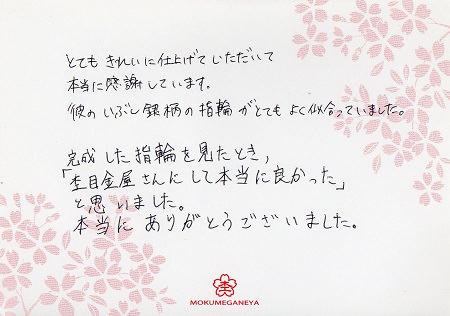 とても きれいに仕上げて いただいて
本当に感謝しています。
彼の いぶし銀柄の指輪が とても よく似合っていました。
完成した指輪を見たとき、
「杢目金屋さんにして本当に良かった」
と思いました。
本当に ありがとうございました。
MOKUMEGANEYA